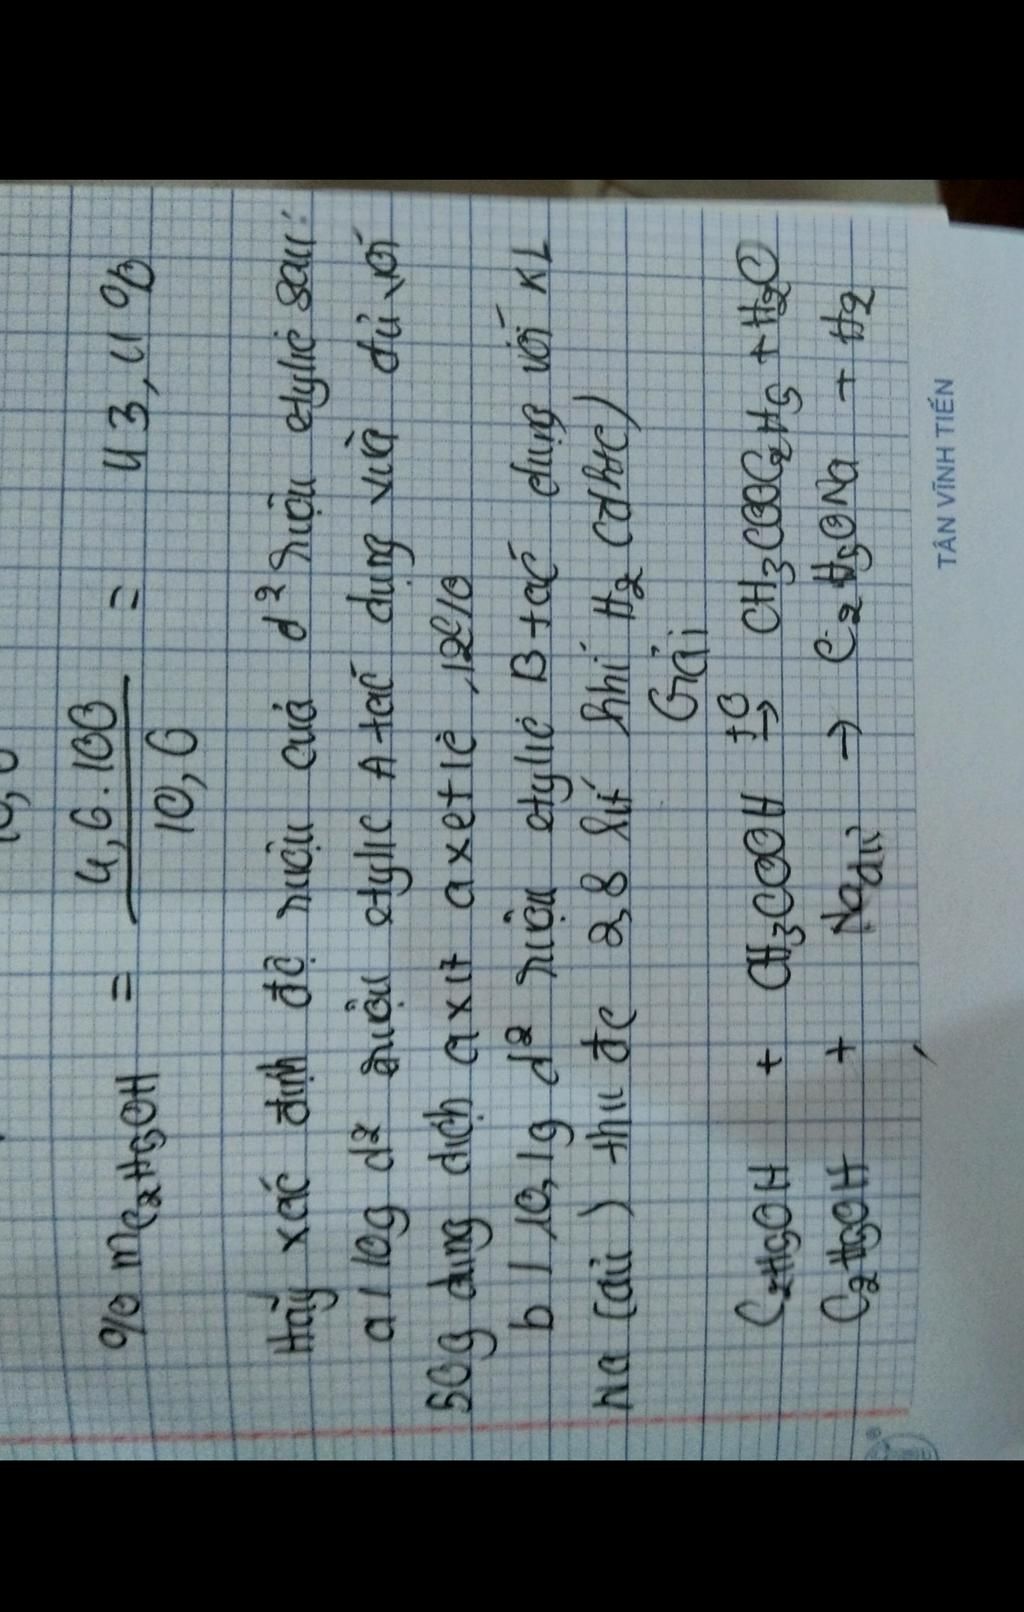 % mC₂H₅OH = 4,6.100 / 10,6 = 43,4%
Hãy xác định độ rượu của d² rượu etylic sau:
a/ 10g d² rượu etylic A tác dụng vừa đủ với
50g dung dịch axit axetic 12%
b/ 10,1g d² rượu etylic B tác dụng với KL
na (dư) thu đc 2,8 lít khí H₂ (đktc)
Giải
C₂H₅OH + CH₃COOH → CH₃COOC₂H₅ + H₂O
C₂H₅OH + Na dư → C₂H₅ONa + H₂
TÂN VĨNH TIẾN